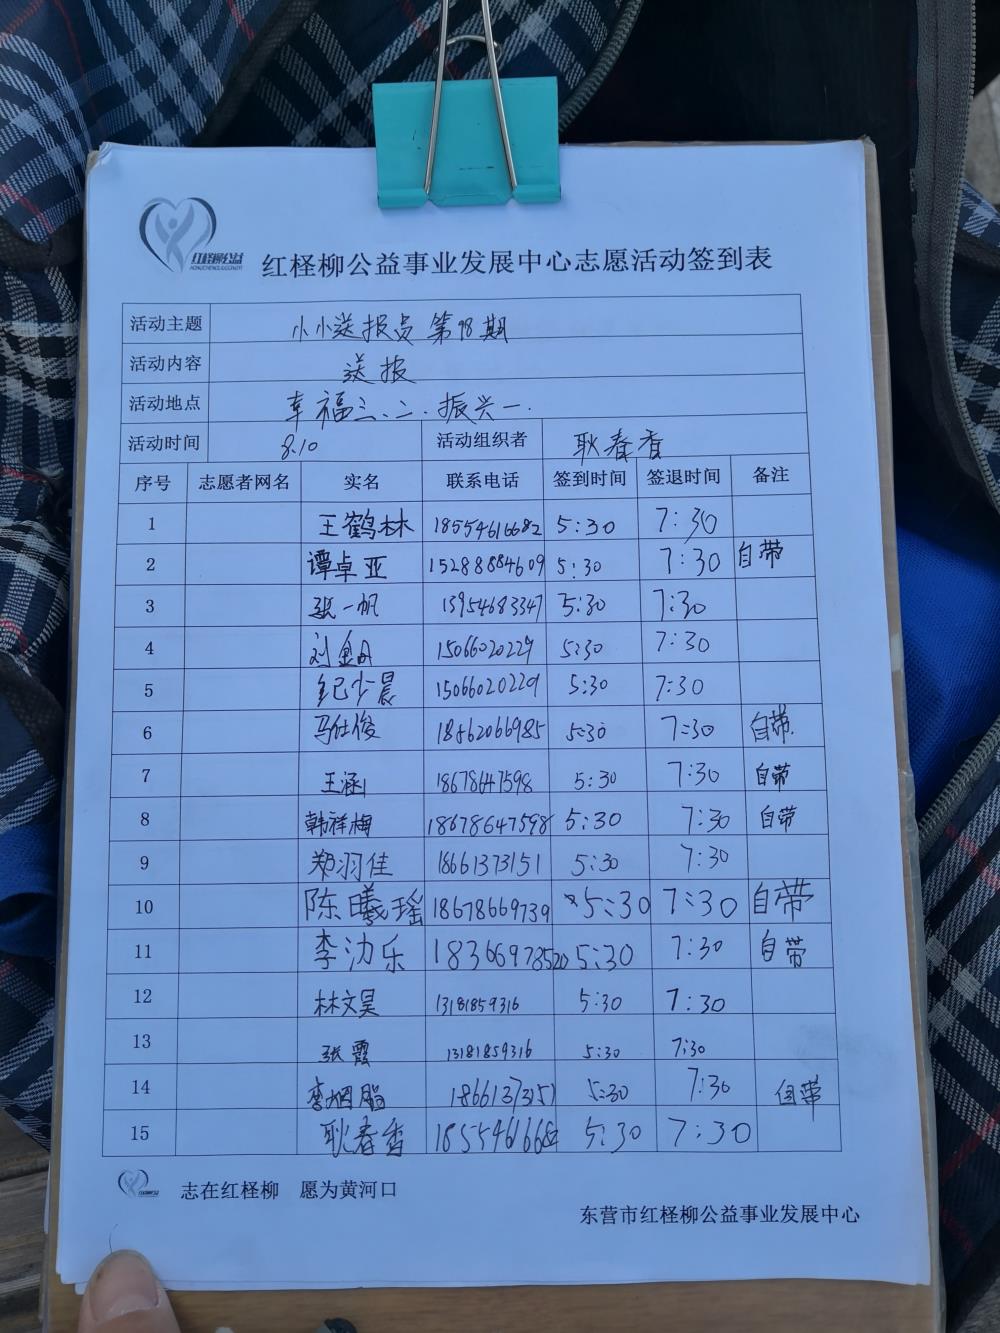 红柽柳公益
红柽柳公益事业发展中心志愿活动签到表
活动主题 小小送报员 第98期
活动内容 送报
活动地点 幸福三、二、振兴一.
活动时间 8.10 活动组织者 耿春香
序号 志愿者网名 实名 联系电话 签到时间 签退时间 备注
1 王鹤林 18554616682 5:30 7:30
2 谭卓亚 15288884609 5:30 7:30 自带
3 张一帆 13954683347 5:30 7:30
4 刘金丹 15066020229 5:30 7:30
5 纪少晨 15066020229 5:30 7:30
6 马仕俊 18562066985 5:30 7:30 自带.
7 王涵 18678647598 5:30 7:30 自带
8 韩祥梅 18678647598 5:30 7:30 自带
9 郑羽佳 18661373151 5:30 7:30
10 陈曦瑶 18678669739 5:30 7:30 自带
11 李沐乐 18366978520 5:30 7:30 自带
12 林文昊 13181859316 5:30 7:30
13 张霞 13181859316 5:30 7:30
14 18661373151 5:30 7:30 自带
15 耿春香 18554616682 5:30 7:30
志在红柽柳 愿为黄河口
东营市红柽柳公益事业发展中心